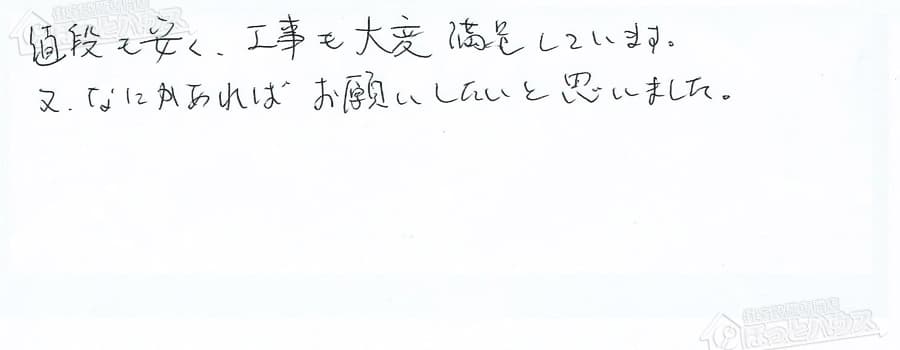 値段も安く、工事も大変満足しています。
又、なにかあればお願いしたいと思いました。
ほっとハウス